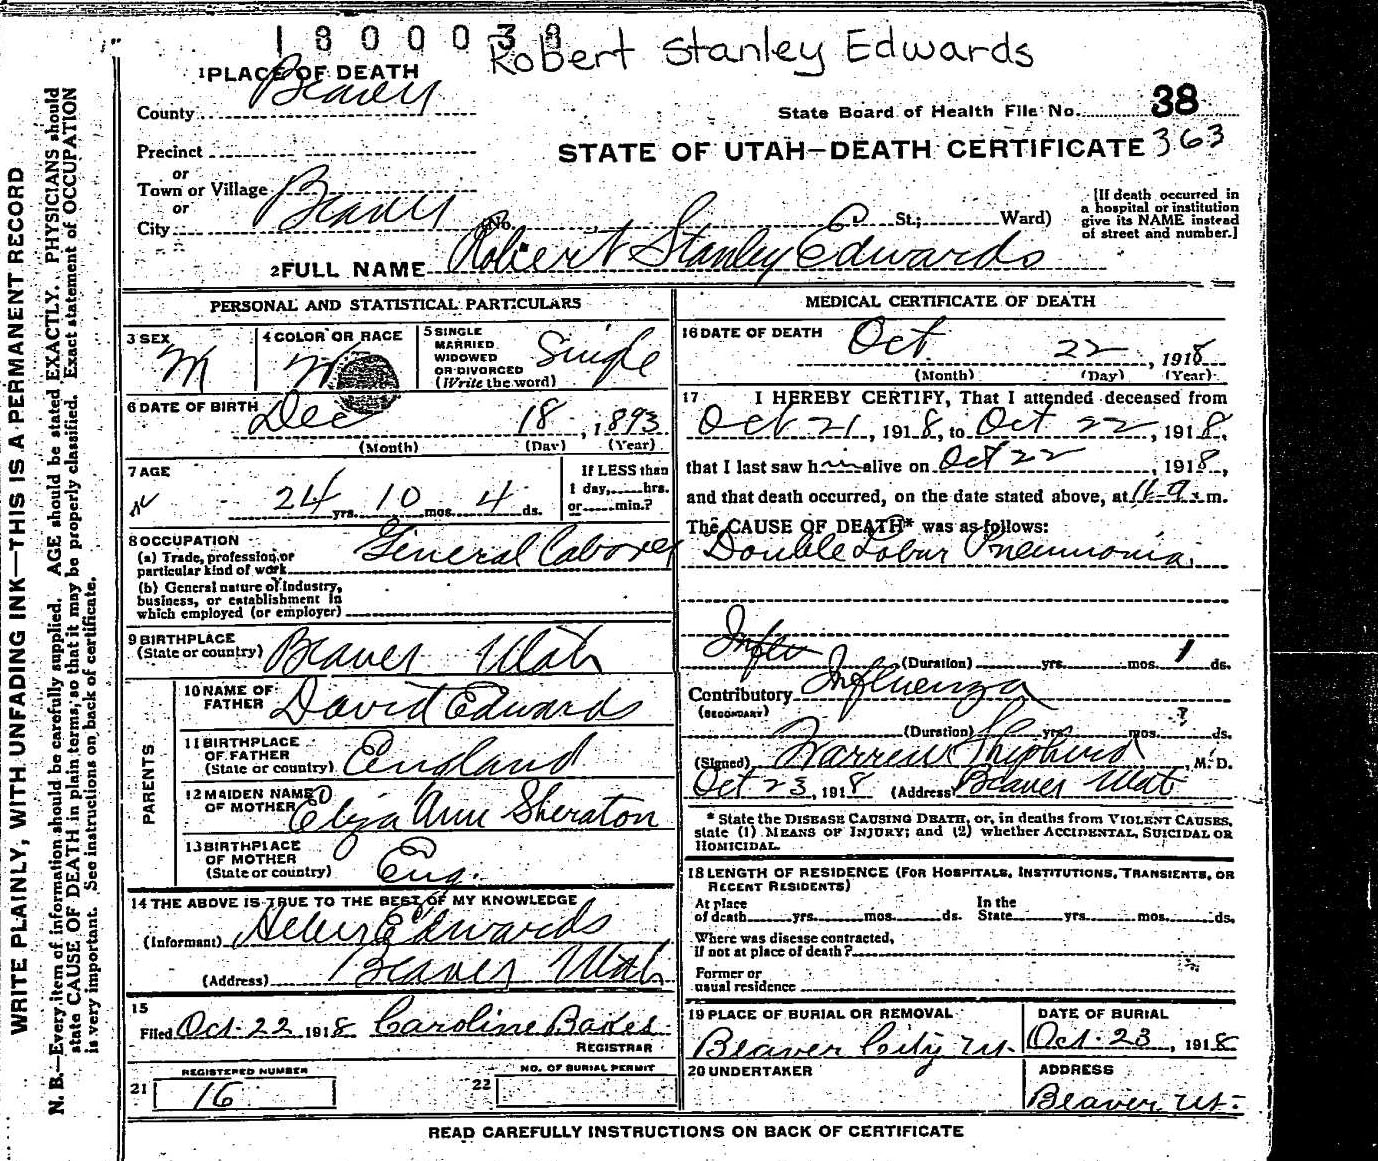 1800038
Robert Stanley Edwards
1 PLACE OF DEATH
County Beaver
State Board of Health File No. 38
Precinct
STATE OF UTAH—DEATH CERTIFICATE 363
or
Town or Village
or
City Beaver
No. St.; Ward)
[If death occurred in
a hospital or institution
give its NAME instead
of street and number.]
2 FULL NAME Robert Stanley Edwards
PERSONAL AND STATISTICAL PARTICULARS
3 SEX M
4 COLOR OR RACE W
5 SINGLE
MARRIED
WIDOWED
OR DIVORCED
(Write the word) Single
6 DATE OF BIRTH Dec 18, 1893
(Month) (Day) (Year)
7 AGE
24 yrs. 10 mos. 4 ds.
If LESS than
1 day, hrs.
or min.?
8 OCCUPATION
(a) Trade, profession, or
particular kind of work General Laborer
(b) General nature of Industry,
business, or establishment in
which employed (or employer)
9 BIRTHPLACE
(State or country) Beaver Utah
PARENTS
10 NAME OF
FATHER David Edwards
11 BIRTHPLACE
OF FATHER
(State or country) England
12 MAIDEN NAME
OF MOTHER Eliza Ann Sheraton
13 BIRTHPLACE
OF MOTHER
(State or country) Eng.
14 THE ABOVE IS TRUE TO THE BEST OF MY KNOWLEDGE
(Informant) Helen Edwards
(Address) Beaver Utah
15
Filed Oct. 22 1918 Caroline Bakes
REGISTRAR
21 REGISTERED NUMBER
16
22 NO. OF BURIAL PERMIT
MEDICAL CERTIFICATE OF DEATH
16 DATE OF DEATH Oct 22, 1918
(Month) (Day) (Year)
17 I HEREBY CERTIFY, That I attended deceased from
Oct 21, 1918, to Oct 22, 1918,
that I last saw him alive on Oct 22, 1918,
and that death occurred, on the date stated above, at 11 a. m.
The CAUSE OF DEATH* was as follows:
Double Lobur Pneumonia.
Influ
(Duration) yrs. mos. 1 ds.
Contributory Influenza
(SECONDARY)
(Duration) yrs. mos. ? ds.
(Signed) Warren Shepherd, M. D.
Oct 23, 1918 (Address) Beaver Utah
* State the DISEASE CAUSING DEATH, or, in deaths from VIOLENT CAUSES,
state (1) MEANS OF INJURY; and (2) whether ACCIDENTAL, SUICIDAL OR
HOMICIDAL.
18 LENGTH OF RESIDENCE (FOR HOSPITALS, INSTITUTIONS, TRANSIENTS, OR
RECENT RESIDENTS)
At place
of death yrs. mos. ds.
In the
State yrs. mos. ds.
Where was disease contracted,
if not at place of death?
Former or
usual residence
19 PLACE OF BURIAL OR REMOVAL
Beaver City Ut.
DATE OF BURIAL
Oct. 23, 1918
20 UNDERTAKER
ADDRESS
Beaver Ut.
READ CAREFULLY INSTRUCTIONS ON BACK OF CERTIFICATE
WRITE PLAINLY, WITH UNFADING INK—THIS IS A PERMANENT RECORD
N. B.—Every item of information should be carefully supplied. AGE should be stated EXACTLY. PHYSICIANS should
state CAUSE OF DEATH in plain terms, so that it may be properly classified. Exact statement of OCCUPATION
is very important. See instructions on back of certificate.